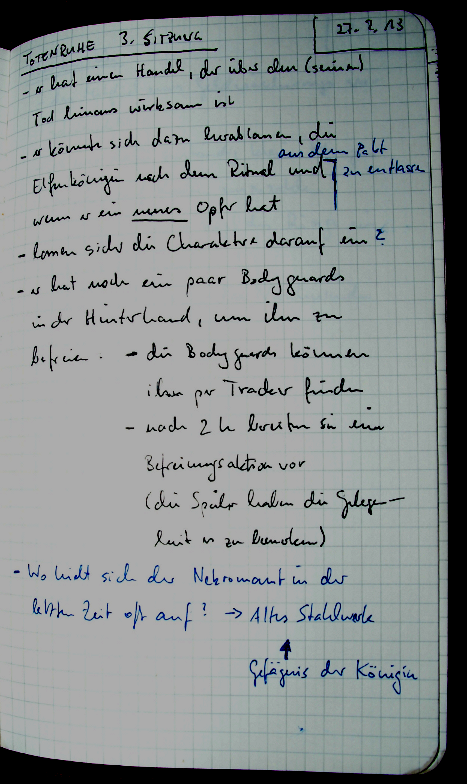 TOTENRUHE 3. SITZUNG
27.2.13
- er hat einen Handel, der über den (seinen)
Tod hinaus wirksam ist
- er könnte sich dazu herablassen, die
aus dem Pakt
Elfenkönigin nach dem Ritual und zu entlassen
wenn er ein neues Opfer hat
- lassen sich die Charaktere darauf ein?
- er hat noch ein paar Bodyguards
in der Hinterhand, um ihn zu
befreien. - die Bodyguards können
ihn per Tracker finden
- nach 2h bereiten sie eine
Befreiungsaktion vor
(die Spieler haben die Gelegen-
heit es zu bemerken)
- Wo hielt sich der Nekromant in der
letzten Zeit oft auf? → Altes Stahlwerk
Gefägnis der Königin